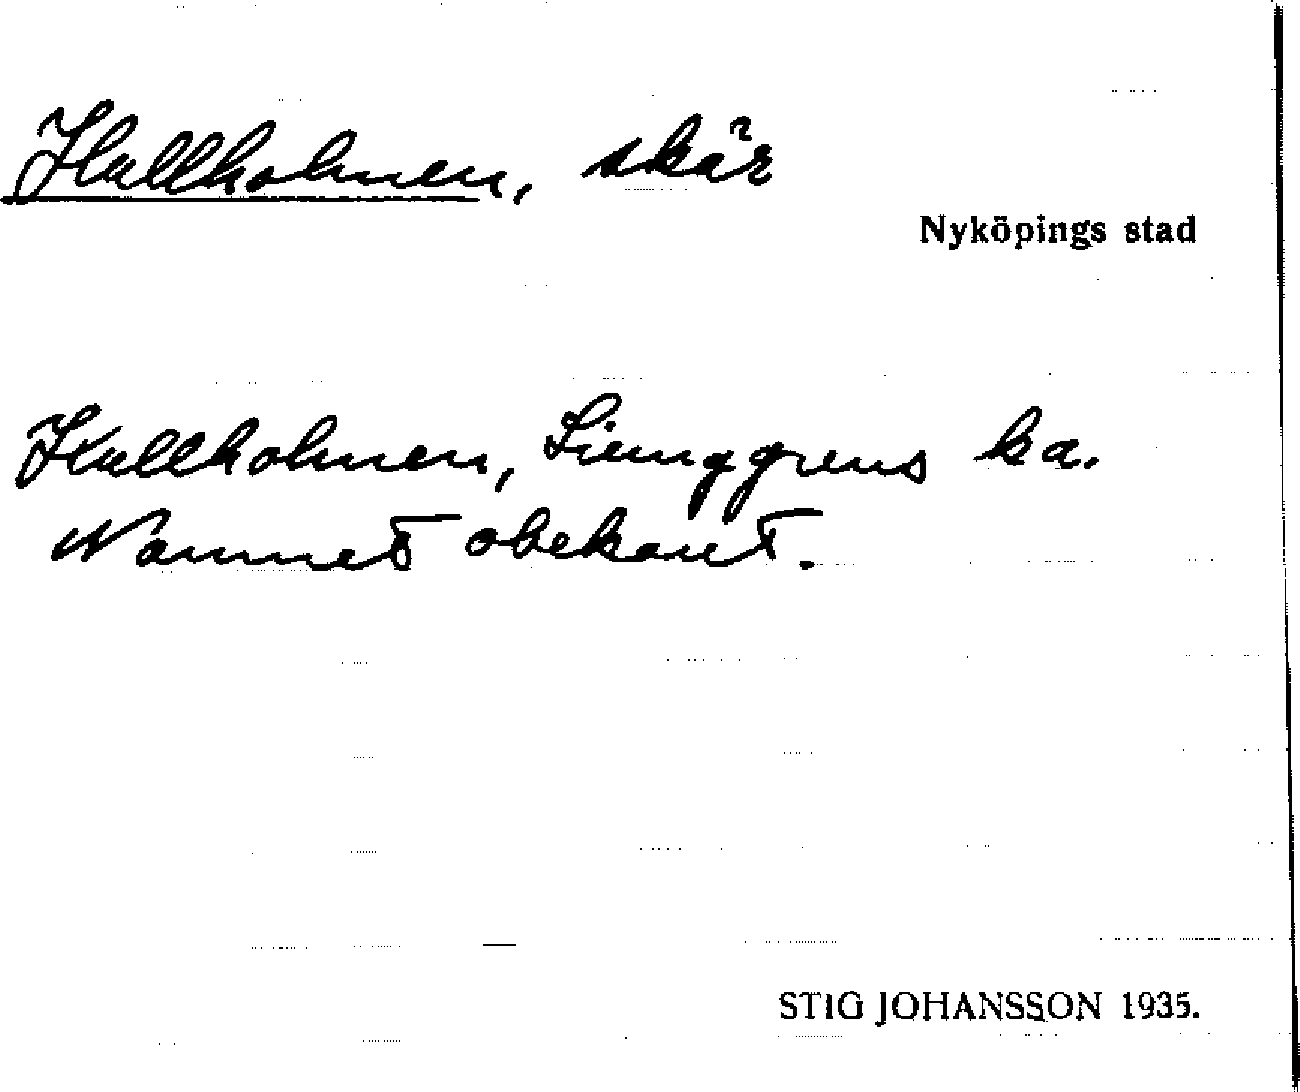 Hallholmen, skär
Nyköpings stad
Hallholmen, Ljunggrens ka.
Namnet obekant.
STIG JOHANSSON 1935.